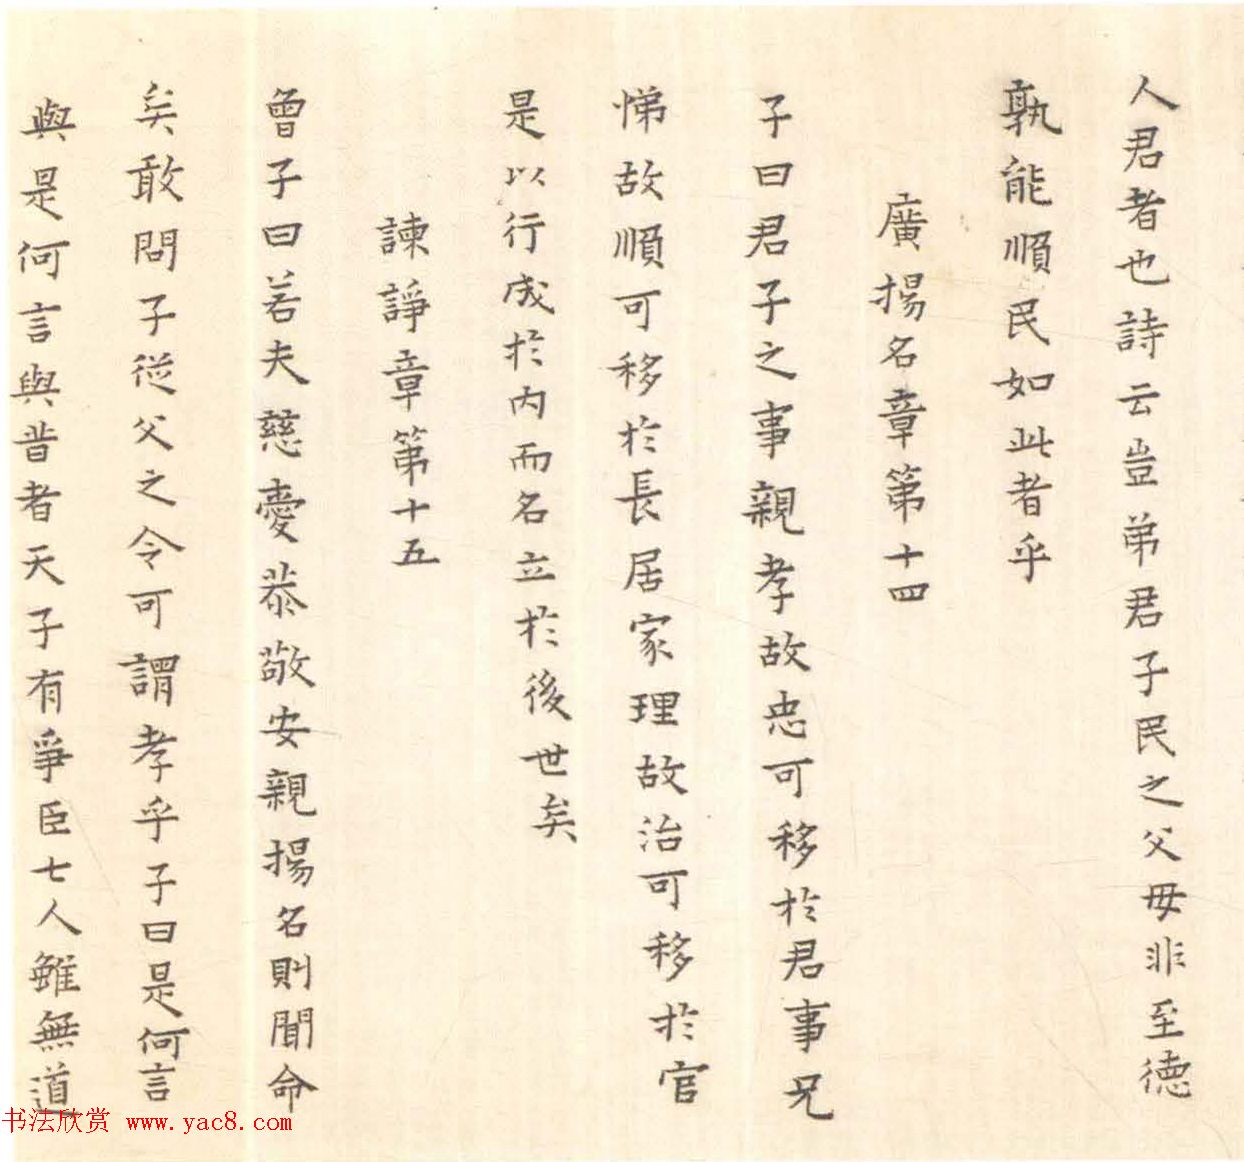 人君者也詩云豈弟君子民之父母非至德
孰能順民如此者乎
廣揚名章第十四
子曰君子之事親孝故忠可移於君事兄
悌故順可移於長居家理故治可移於官
是以行成於内而名立於後世矣
諫諍章第十五
曾子曰若夫慈愛恭敬安親揚名則聞命
矣敢問子從父之令可謂孝乎子曰是何言
與是何言與昔者天子有爭臣七人雖無道
书法欣赏 www.yac8.com